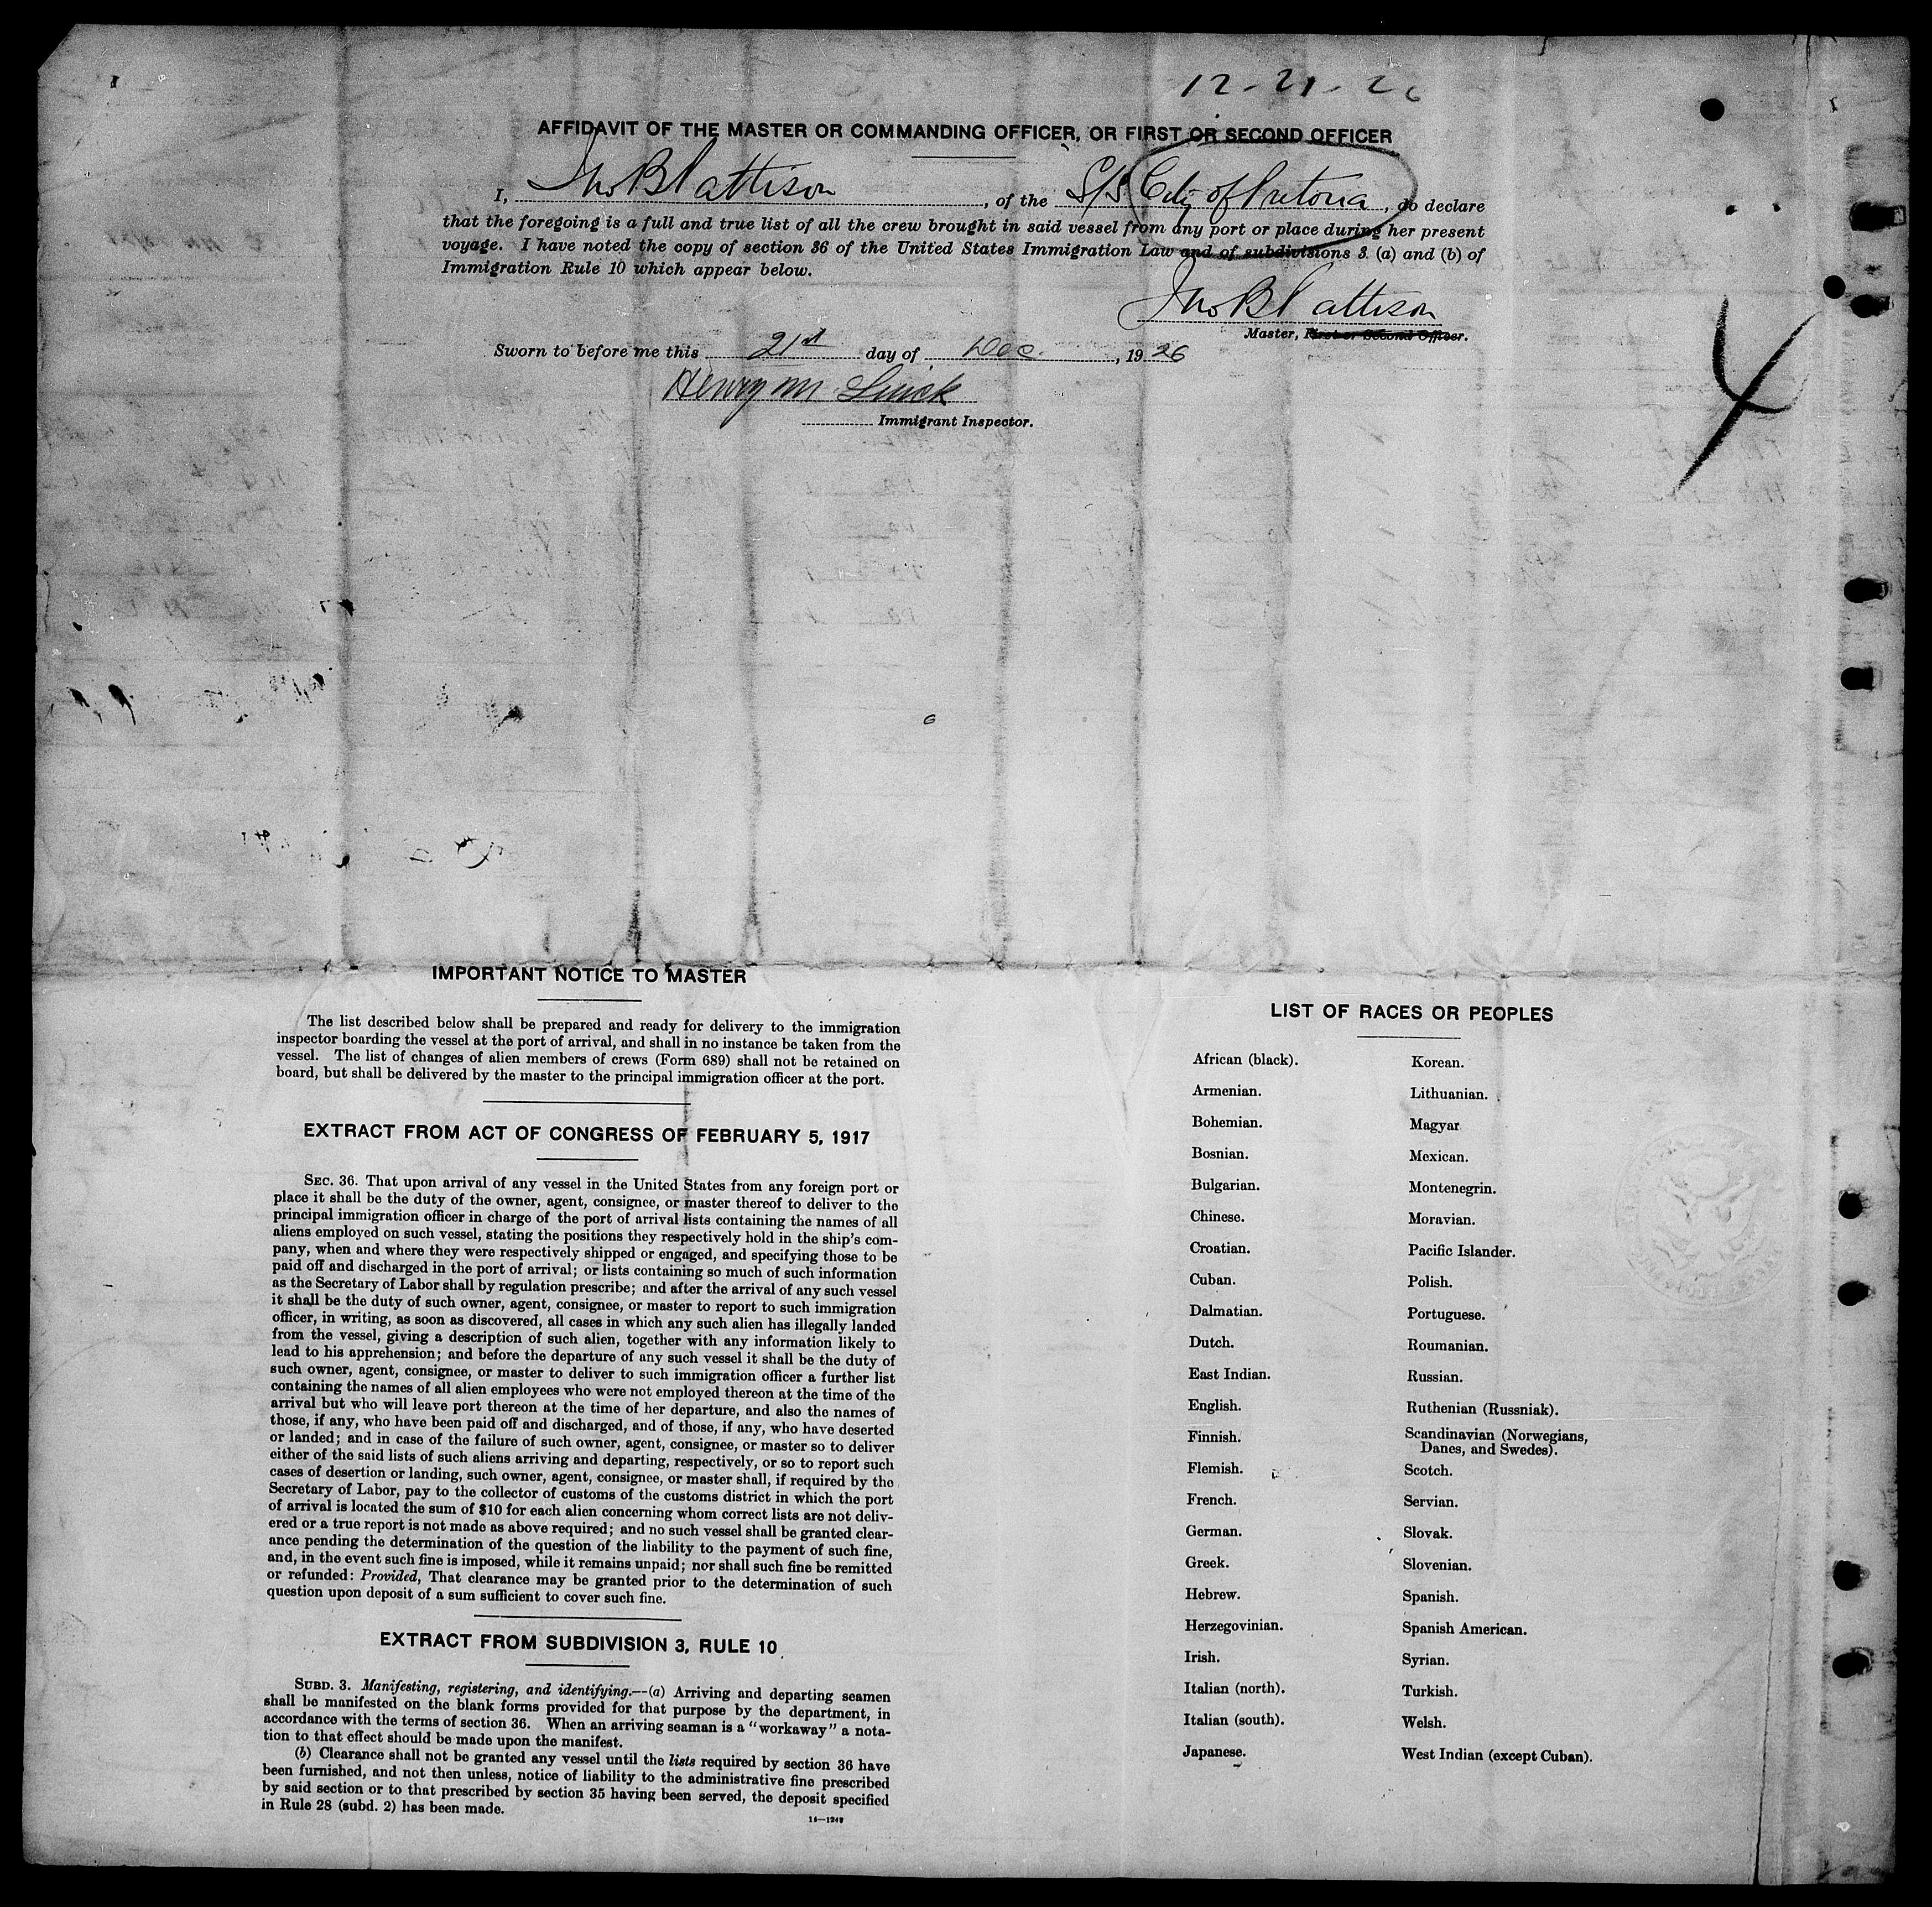 12-21-26
AFFIDAVIT OF THE MASTER OR COMMANDING OFFICER, OR FIRST OR SECOND OFFICER
I, Jno B Pattison, of the S/S City of Pretoria, do declare
that the foregoing is a full and true list of all the crew brought in said vessel from any port or place during her present
voyage. I have noted the copy of section 36 of the United States Immigration Law and of subdivisions 3 (a) and (b) of
Immigration Rule 10 which appear below.
Jno B Pattison
Master, First or Second Officer.
Sworn to before me this 21st day of Dec., 1926
Henry M
Immigrant Inspector.
4
IMPORTANT NOTICE TO MASTER
The list described below shall be prepared and ready for delivery to the immigration
inspector boarding the vessel at the port of arrival, and shall in no instance be taken from the
vessel. The list of changes of alien members of crews (Form 689) shall not be retained on
board, but shall be delivered by the master to the principal immigration officer at the port.
EXTRACT FROM ACT OF CONGRESS OF FEBRUARY 5, 1917
SEC. 36. That upon arrival of any vessel in the United States from any foreign port or
place it shall be the duty of the owner, agent, consignee, or master thereof to deliver to the
principal immigration officer in charge of the port of arrival lists containing the names of all
aliens employed on such vessel, stating the positions they respectively hold in the ship's com-
pany, when and where they were respectively shipped or engaged, and specifying those to be
paid off and discharged in the port of arrival; or lists containing so much of such information
as the Secretary of Labor shall by regulation prescribe; and after the arrival of any such vessel
it shall be the duty of such owner, agent, consignee, or master to report to such immigration
officer, in writing, as soon as discovered, all cases in which any such alien has illegally landed
from the vessel, giving a description of such alien, together with any information likely to
lead to his apprehension; and before the departure of any such vessel it shall be the duty of
such owner, agent, consignee, or master to deliver to such immigration officer a further list
containing the names of all alien employees who were not employed thereon at the time of the
arrival but who will leave port thereon at the time of her departure, and also the names of
those, if any, who have been paid off and discharged, and of those, if any, who have deserted
or landed; and in case of the failure of such owner, agent, consignee, or master so to deliver
either of the said lists of such aliens arriving and departing, respectively, or so to report such
cases of desertion or landing, such owner, agent, consignee, or master shall, if required by the
Secretary of Labor, pay to the collector of customs of the customs district in which the port
of arrival is located the sum of $10 for each alien concerning whom correct lists are not deliv-
ered or a true report is not made as above required; and no such vessel shall be granted clear-
ance pending the determination of the question of the liability to the payment of such fine,
and, in the event such fine is imposed, while it remains unpaid; nor shall such fine be remitted
or refunded: Provided, That clearance may be granted prior to the determination of such
question upon deposit of a sum sufficient to cover such fine.
EXTRACT FROM SUBDIVISION 3, RULE 10
SUBD. 3. Manifesting, registering, and identifying.—(a) Arriving and departing seamen
shall be manifested on the blank forms provided for that purpose by the department, in
accordance with the terms of section 36. When an arriving seaman is a "workaway" a nota-
tion to that effect should be made upon the manifest.
(b) Clearance shall not be granted any vessel until the lists required by section 36 have
been furnished, and not then unless, notice of liability to the administrative fine prescribed
by said section or to that prescribed by section 35 having been served, the deposit specified
in Rule 28 (subd. 2) has been made.
14—1249
LIST OF RACES OR PEOPLES
African (black).
Armenian.
Bohemian.
Bosnian.
Bulgarian.
Chinese.
Croatian.
Cuban.
Dalmatian.
Dutch.
East Indian.
English.
Finnish.
Flemish.
French.
German.
Greek.
Hebrew.
Herzegovinian.
Irish.
Italian (north).
Italian (south).
Japanese.
Korean.
Lithuanian.
Magyar
Mexican.
Montenegrin.
Moravian.
Pacific Islander.
Polish.
Portuguese.
Roumanian.
Russian.
Ruthenian (Russniak).
Scandinavian (Norwegians,
Danes, and Swedes).
Scotch.
Servian.
Slovak.
Slovenian.
Spanish.
Spanish American.
Syrian.
Turkish.
Welsh.
West Indian (except Cuban).